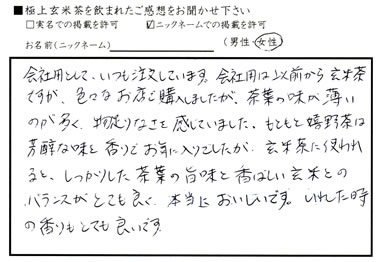 ■極上玄米茶を飲まれたご感想をお聞かせ下さい
□実名での掲載を許可 ☑ニックネームでの掲載を許可
お名前(ニックネーム) (男性・女性)
会社用として、いつも注文しています。会社用は以前から玄米茶
ですが、色々なお店で購入しましたが、茶葉の味が薄い
のが多く、物足りなさを感じていました。もともと嬉野茶は
芳醇な味と香りでお気に入りでしたが、玄米茶に使われ
ると、しっかりした茶葉の旨味と香ばしい玄米との
バランスがとても良く、本当においしいです。いれた時
の香りもとても良いです。